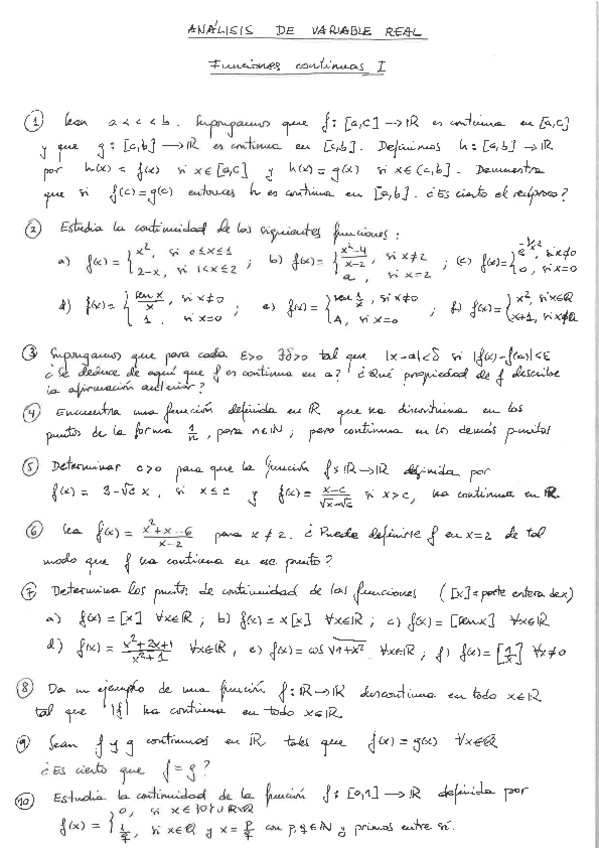 ANÁLISIS DE VARIABLE REAL
Funciones continuas I
① Sean a < c < b. Supongamos que f: [a,c] → ℝ es continua en [a,c]
y que g: [c,b] → ℝ es continua en [c,b]. Definimos h: [a,b] → ℝ
por h(x) = f(x) si x ∈ [a,c] y h(x) = g(x) si x ∈ (c,b]. Demuestra
que si f(c) = g(c) entonces h es continua en [a,b]. ¿Es cierto el recíproco?
② Estudia la continuidad de las siguientes funciones:
a) f(x) = { x², si 0≤x≤1; 2-x, si 1<x≤2 ; b) f(x) = { (x²-4)/(x-2), si x≠2; a, si x=2 ; c) f(x) = { e^(-1/x²), si x≠0; 0, si x=0
d) f(x) = { sen x/x, si x≠0; 1, si x=0 ; e) f(x) = { sen 1/x, si x≠0; A, si x=0 ; f) f(x) = { x², si x∈ℚ; x+1, si x∉ℚ
③ Supongamos que para cada ε>0 ∃δ>0 tal que |x-a|<δ si |f(x)-f(a)|≤ε
¿Se deduce de aquí que f es continua en a? ¿Qué propiedad de f describe
la afirmación anterior?
④ Encuentra una función definida en ℝ que sea discontinua en los
puntos de la forma 1/n, para n∈ℕ; pero continua en los demás puntos
⑤ Determinar c>0 para que la función f: ℝ → ℝ definida por
f(x) = 3-√c x, si x ≤ c y f(x) = (x-c)/(√x-√c) si x>c, sea continua en ℝ.
⑥ Sea f(x) = (x²+x-6)/(x-2) para x ≠ 2. ¿Puede definirse f en x=2 de tal
modo que f sea continua en ese punto?
⑦ Determina los puntos de continuidad de las funciones ([x] = parte entera de x)
a) f(x) = [x] ∀x∈ℝ ; b) f(x) = x[x] ∀x∈ℝ ; c) f(x) = [sen x] ∀x∈ℝ
d) f(x) = (x²+2x+1)/(x²+1) ∀x∈ℝ, e) f(x) = cos √(1+x²) ∀x∈ℝ ; f) f(x) = [1/x] ∀x≠0
⑧ Da un ejemplo de una función f: ℝ → ℝ discontinua en todo x∈ℝ
tal que |f| sea continua en todo x∈ℝ.
⑨ Sean f y g continuas en ℝ tales que f(x) = g(x) ∀x∈ℚ
¿Es cierto que f = g?
⑩ Estudia la continuidad de la función f: [0,1] → ℝ definida por
f(x) = { 0, si x∈{0}∪ℝ\ℚ; 1/q, si x∈ℚ y x = p/q con p,q∈ℕ y primos entre sí.